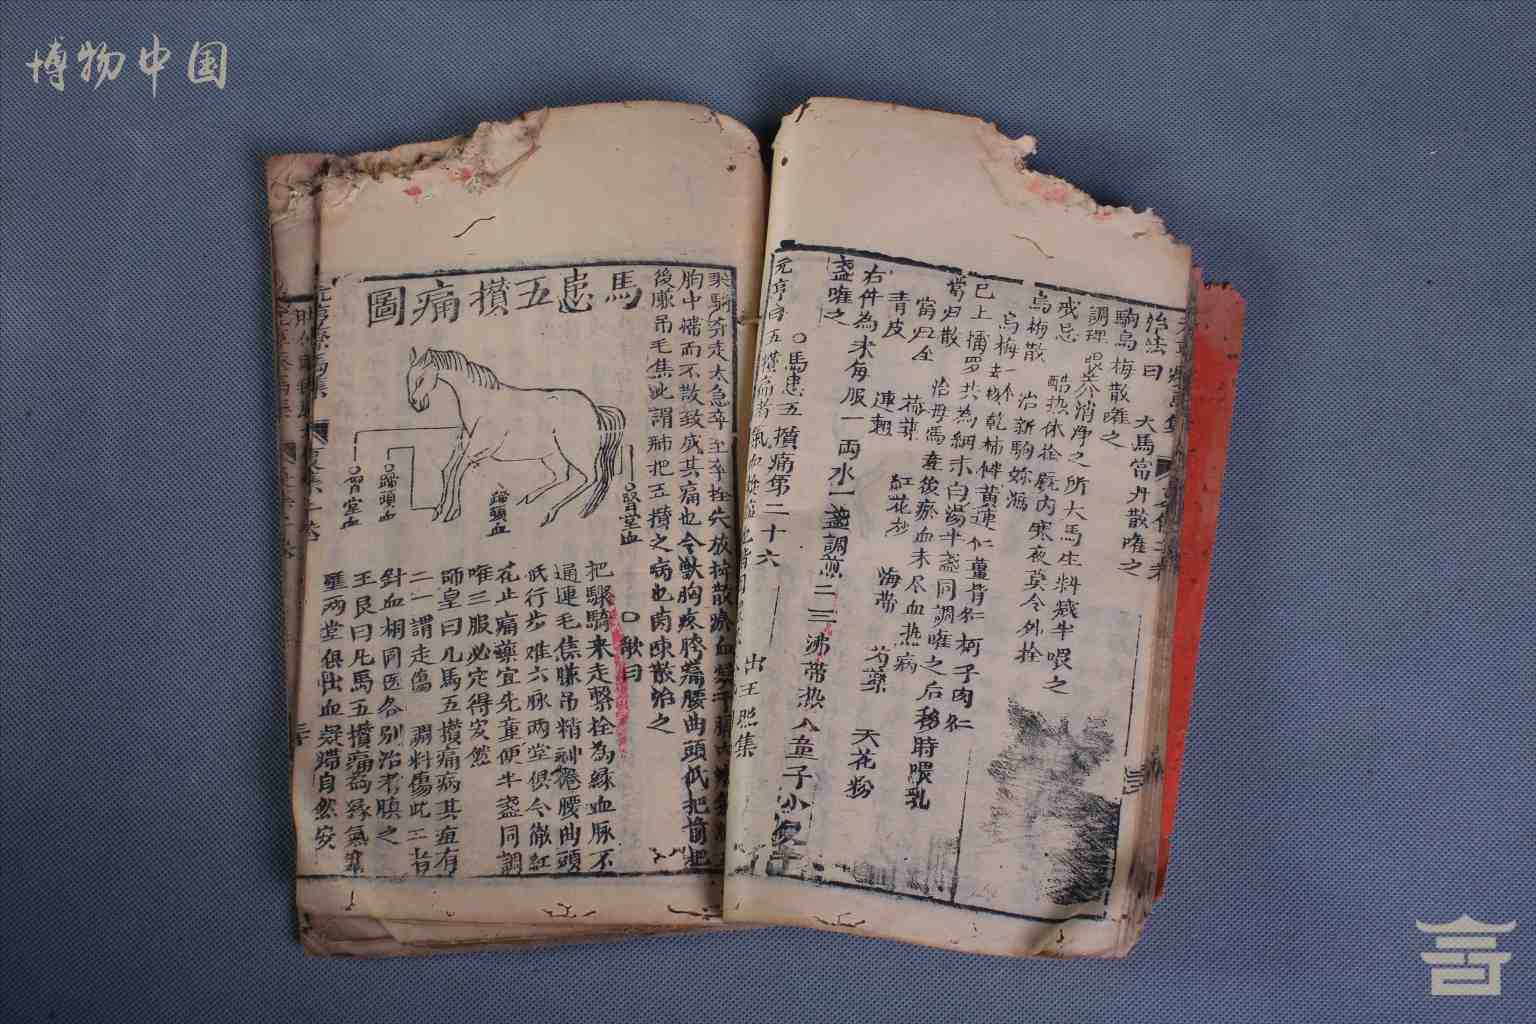 博物中国
治法曰　大馬當丹散嚾之
駒烏梅散嚾之
調理　喂养消净之所大馬生料减半喂之
戒忌　酷热休拴厩内寒夜莫令外拴
烏梅散　治新駒妳瀉
烏梅一个去核乾柿伴黄連仁薑黄仁柯子肉仁
已上搗罗共為細末白湯半盞同調嚾之后移時喂乳
當归散　治母馬產後瘀血未尽血热病
當归仝　荷葉　紅花炒　海帶　芍藥　天花粉
青皮　連翹
右件為末每服一両水一盞調煎二三沸帶热入童子小便半
盞嚾之
○馬患五攢痛第二十六
元亨曰五攢痛者氣血　出王照集
胸中痞而不散致成其病也令獸胸疼膊痛腰曲頭低把前把
後臁吊毛焦此謂肺把五攢之病也茵陳散治之
馬患五攢痛圖
○腎堂血
蹄頭血
○蹄頭血
○腎堂血
○歌曰
把驟騎来走繫拴為緣血脉不
通連毛焦臁吊精神倦腰曲頭
低行步难六脉両堂俱令徹紅
花止痛藥宜先童便半盞同調
嚾三服必定得安然
師皇曰凡馬五攢痛病其疽有
二一謂走傷　謂料傷此二者
針血相同医各别治者慎之
王良曰凡馬五攢痛為緣氣寒
両堂俱出血凝滯自然安